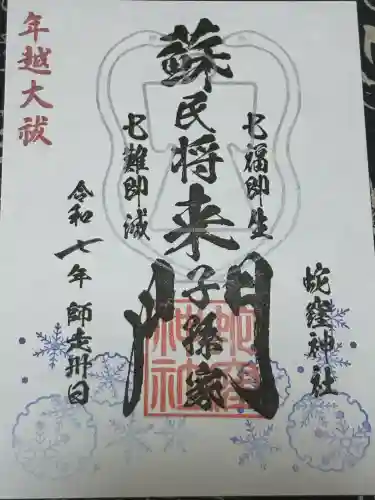 蛇窪神社
七福即生
蘇民将来子孫家門
七難即滅
年越大祓
令和七年 師走卅日
蛇窪神社